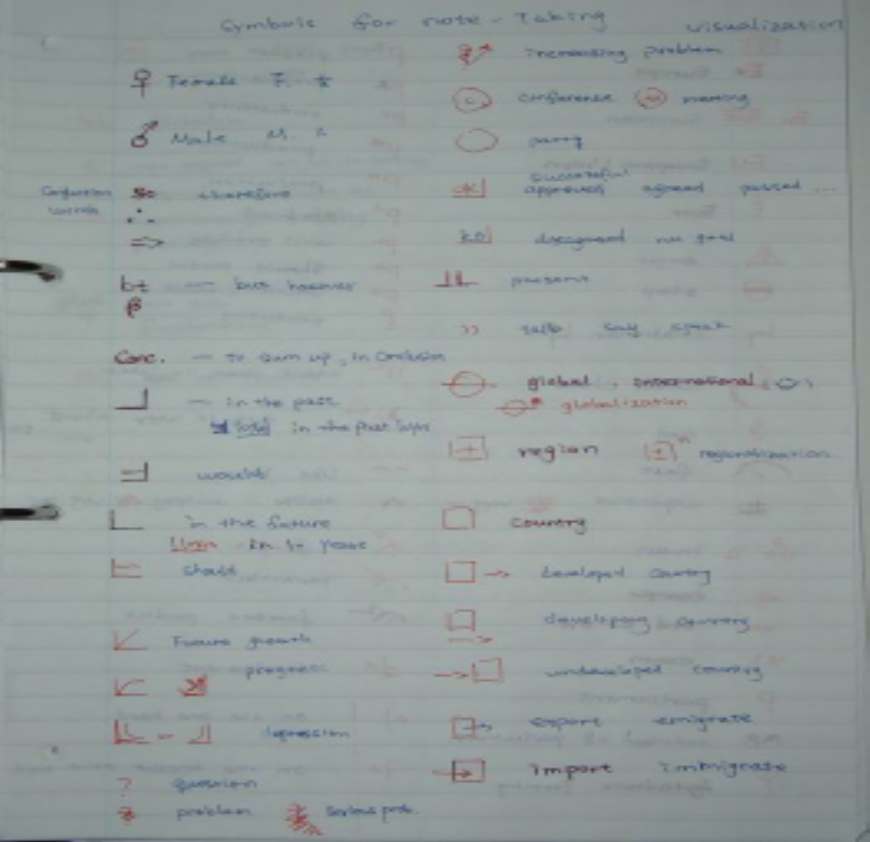 Symbols for note-Taking
visualization
♀ Female F.
♂ Male M.
therefore
∴
=>
bt — but however
β
Conc. — To sum up, in Conclusion
— in the past
in the past
would
in the future
should
Future growth
progress
depression
? question
problem serious prob.
increasing problem
conference meeting
party
successful
approved agreed passed ...
present
>> talk say speak
global, international
globalization
region regionalization
country
→ developed country
developing country
→ undeveloped country
export emigrate
import immigrate